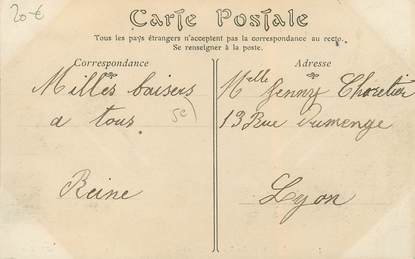 20 €
Carte Postale
Tous les pays étrangers n'acceptent pas la correspondance au recto.
Se renseigner à la poste.
Correspondance
Milles baisers
a tous
5e
Reine
Adresse
Melle Jenny Chorelier
13 Rue Dumenge
Lyon